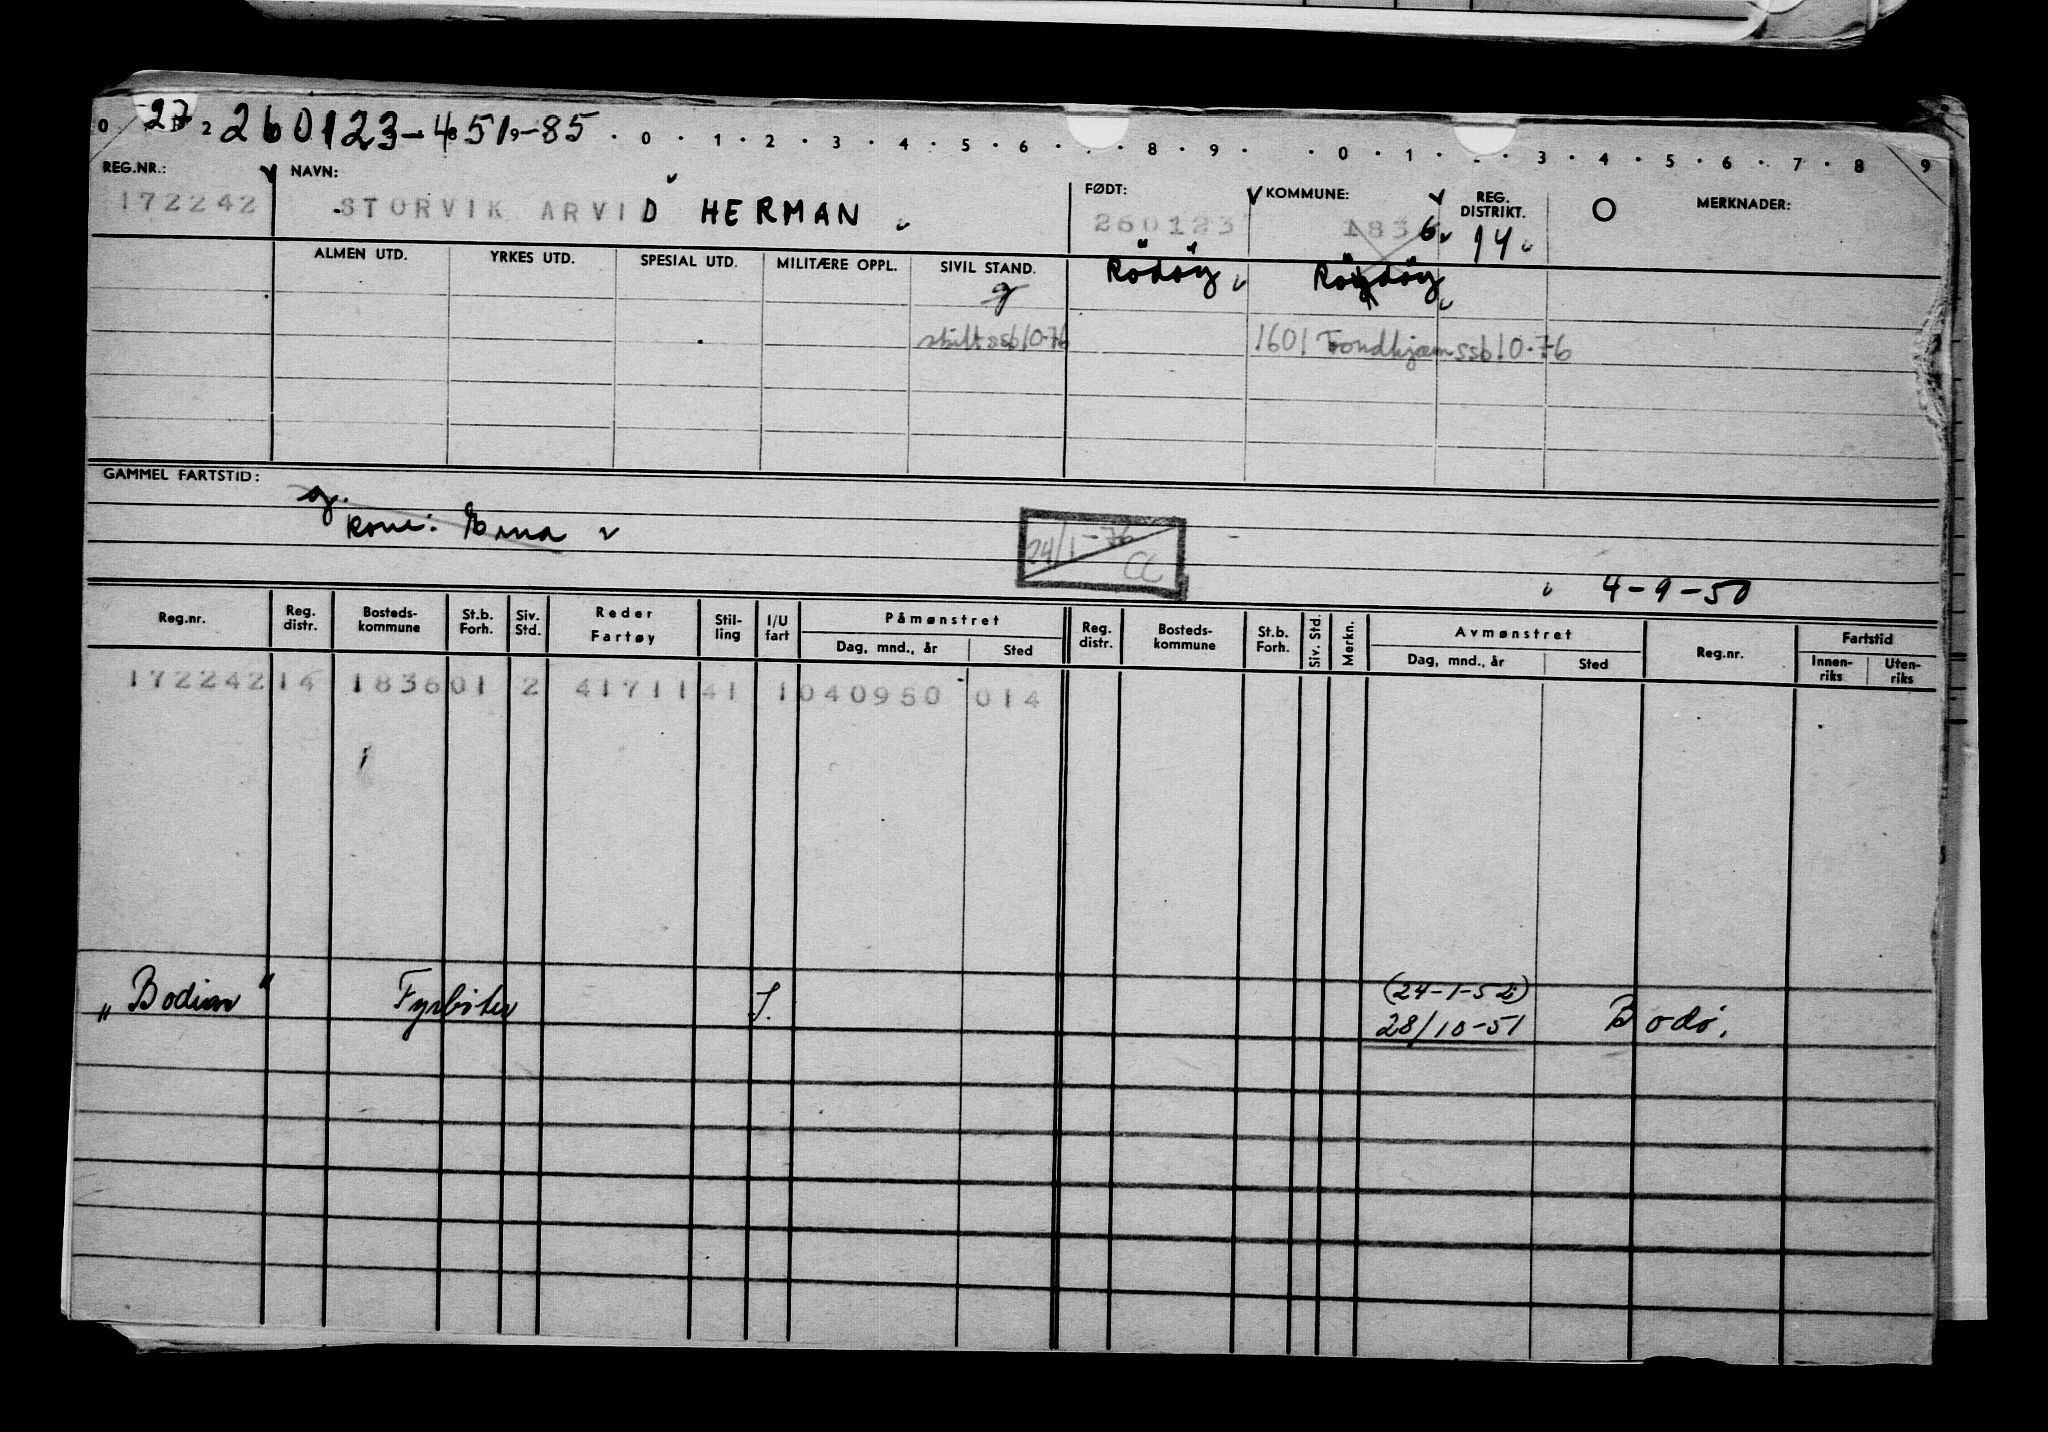 27 260123-451-85
0 2 8 9 0 1 2 3 4 5 6 8 9 0 1 3 4 5 6 7 8 9
REG.NR.: NAVN: FØDT: KOMMUNE: REG. DISTRIKT. MERKNADER:
172242 STORVIK ARVID HERMAN 260123 1836 14
ALMEN UTD. YRKES UTD. SPESIAL UTD. MILITÆRE OPPL. SIVIL STAND. Rödöy Röydöy
g
skilt ssb10-76 1601 Trondhjem ssb10-76
GAMMEL FARTSTID:
g.
kone: Erna
24/1-76
CC
4-9-50
Reg.nr. Reg. distr. Bosteds-kommune St.b. Forh. Siv. Std. Reder Fartøy Stil-ling I/U fart Påmønstret Reg. distr. Bosteds-kommune St.b. Forh. Siv. Std. Merkn. Avmønstret Reg.nr. Fartstid
Dag, mnd., år Sted Dag, mnd., år Sted Innen-riks Uten-riks
172242 14 1836 01 2 41711 41 1 040950 014
(24-1-52)
„Bodin" Fyrbøter I. 28/10-51 Bodø.